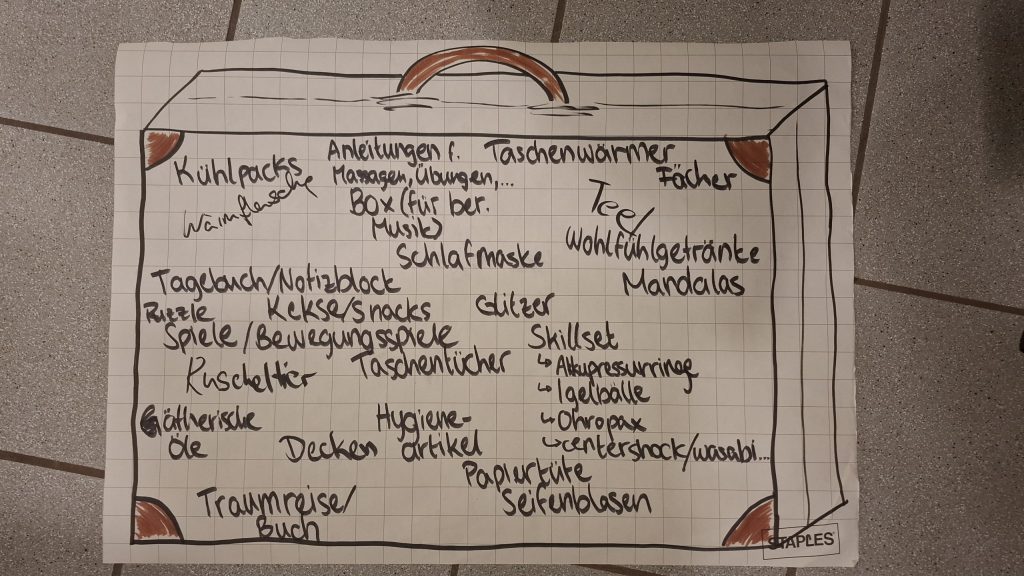 Kühlpacks
Anleitungen f.
Massagen, Übungen,...
Taschenwärmer
Fächer
Wärmflasche
Box (für ber.
Musik)
Tee/
Wohlfühlgetränke
Schlafmaske
Mandalas
Tagebuch/Notizblock
Puzzle
Kekse/snacks
Glitzer
Spiele/Bewegungsspiele
Skillset
↳ Akkupressurringe
↳ Igelbälle
↳ Ohropax
↳ centershock/wasabi...
Kuscheltier
Taschentücher
ätherische
Öle
Decken
Hygiene-
artikel
Papiertüte
Seifenblasen
Traumreise/
Buch
STAPLES